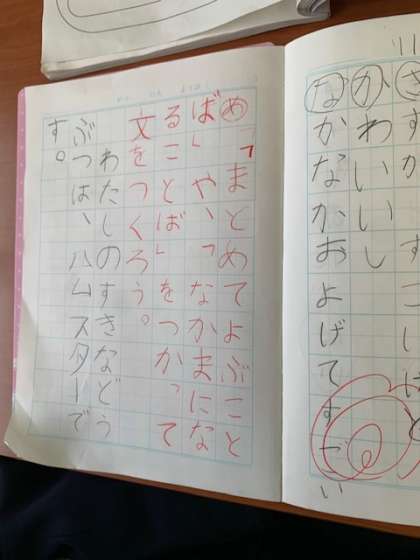 かわいいし
なかなかおよげてすごい
め「まとめてよぶこと
ば」や、「なかまにな
ることば」をつかって
文をつくろう。
わたしのすきなどう
ぶつは、ハムスターで
す。